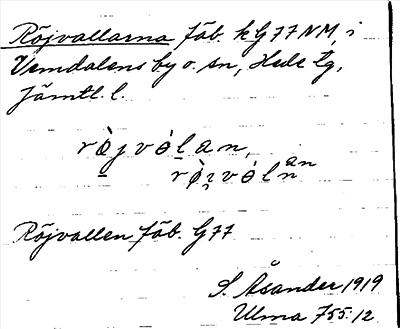 Röjvallarna fäb. k G77 NM, i
Vemdalens by o. sn, Hede tg,
Jämtl. l.
rò̱jvȯḻan,
rò̱jvȯln an
Röjvallen fäb. G77
S. Åsander 1919
Ulma 755:12